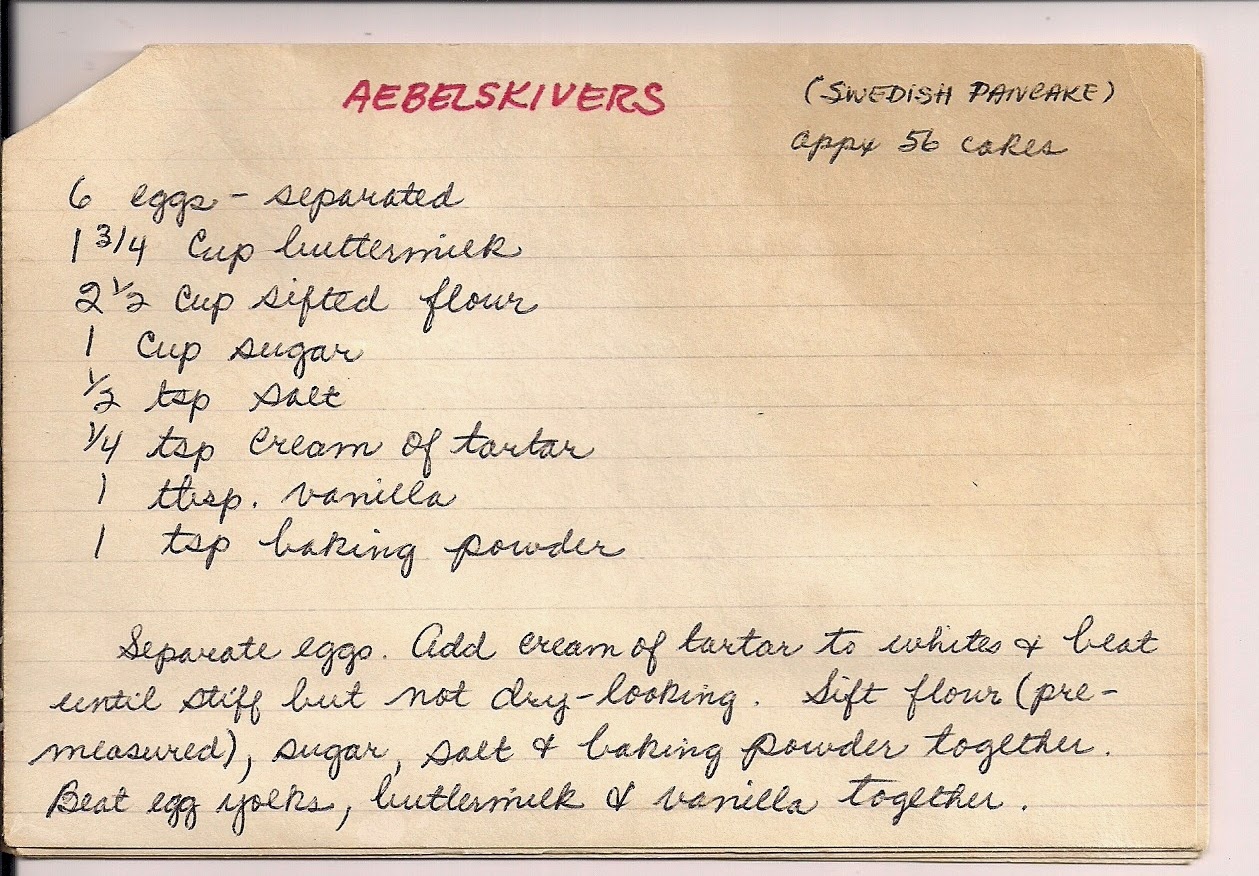 AEBELSKIVERS (SWEDISH PANCAKE)
appx 56 cakes
6 eggs - separated
1 3/4 Cup buttermilk
2 1/2 Cup sifted flour
1 Cup sugar
1/2 tsp salt
1/4 tsp cream of tartar
1 tbsp. vanilla
1 tsp baking powder
Separate eggs. Add cream of tartar to whites & beat
until stiff but not dry-looking. Sift flour (pre-
measured), sugar, salt & baking powder together.
Beat egg yolks, buttermilk & vanilla together.